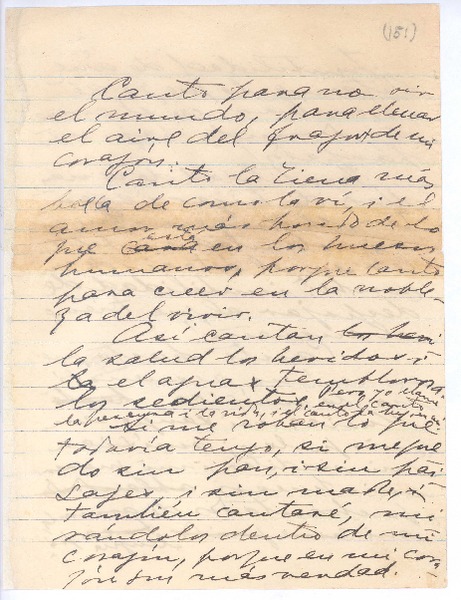 (151)
Canto para no oír
el mundo, para llenar
el aire del fragor de mi
corazón.
Canto la tierra más
bella de como la ví, i el
amor más hondo de lo
que está en los huesos
humanos, porque canto
para creer en la noble-
za del vivir.
Así cantan los heri
la salud los heridos i
el agua
los sedientos. Pero yo
Si me roban lo que
todavía tengo, si me que
do sin pan, i sin pai
sajes, i sin madre,
también cantaré, mi
rándolos dentro de mi
corazón, porque en mi cora
zón son más verdad.